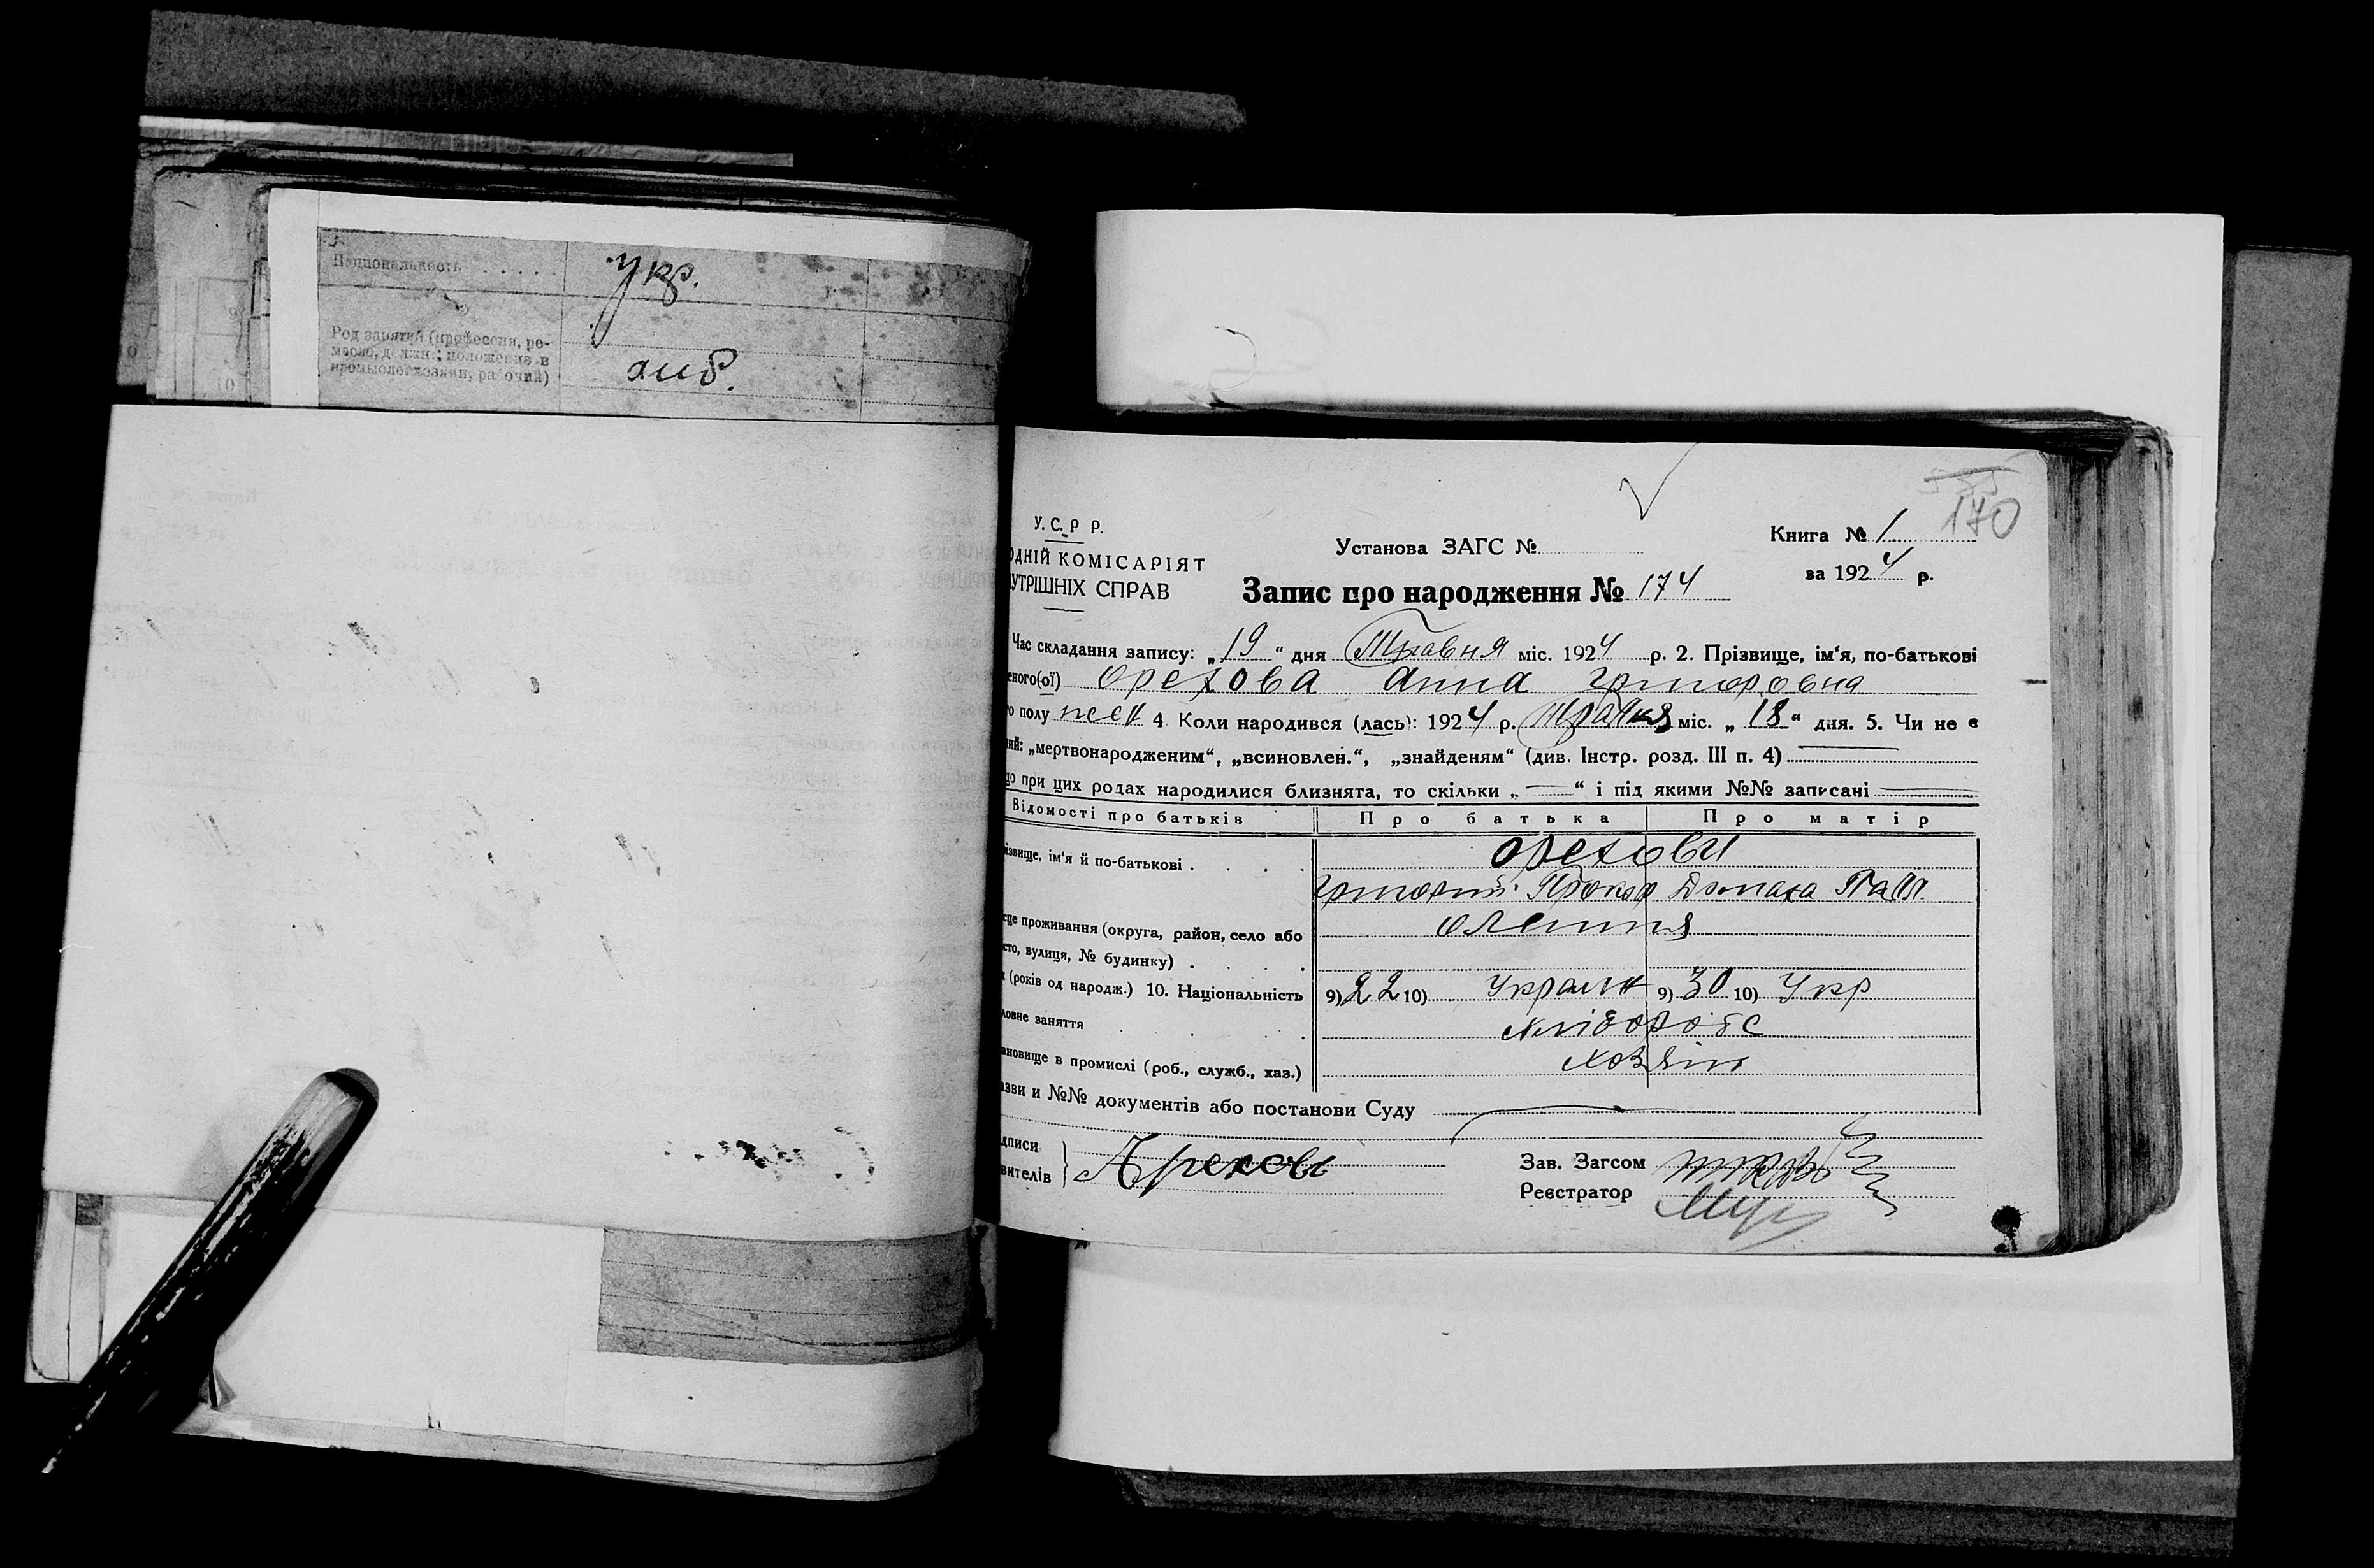 Национальность . . . . . укр.
Род занятий (профессия, ре-
месло, должн.; положение в
промысле: хозяин, рабочий) хліб.
170
У. С. Р. Р.
ОДНІЙ КОМІСАРІЯТ
УТРІШНІХ СПРАВ
Установа ЗАГС №
Книга № 1
за 1924 р.
Запис про народження № 174
Час складання запису: „19“ дня Травня міс. 1924 р. 2. Прізвище, ім'я, по-батькові
еного(ої) Орехова Анна Григоровна
о полу 4. Коли народився (лась): 1924 р. Травня міс. „18“ дня. 5. Чи не є
ий: „мертвонародженим“, „всиновлен.“, „знайденям“ (див. Інстр. розд. III п. 4)
що при цих родах народилися близнята, то скільки „—“ і під якими №№ записані
Відомості про батьків Про батька Про матір
різвище, ім'я й по-батькові . . . . Орехови
Григорий Прокоф Домаха Павл.
сце проживання (округа, район, село або
сто, вулиця, № будинку) . . .
(років од народж.) 10. Національність 9) 22 10) Украин 9) 30 10) Укр
ловне заняття . . . хлібороб
ановище в промислі (роб., служб., хаз.) хозяін
азви и №№ документів або постанови Суду
дписи
вителів } Арехов
Зав. Загсом
Реєстратор